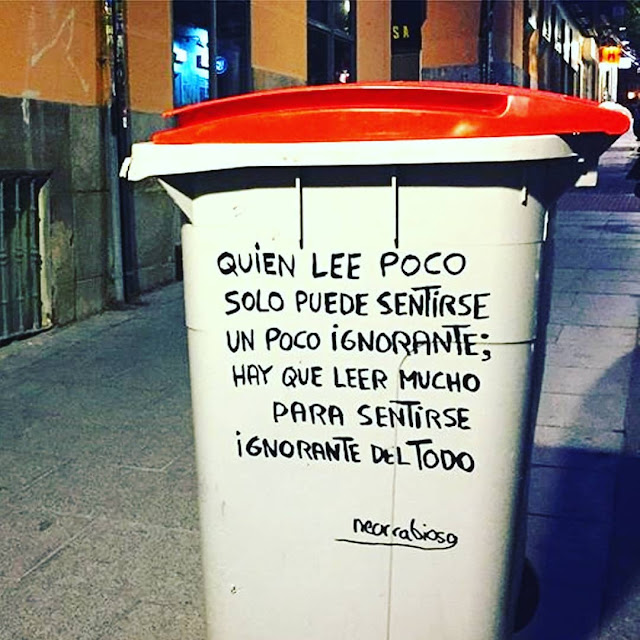 SA
QUIEN LEE POCO
SOLO PUEDE SENTIRSE
UN POCO IGNORANTE;
HAY QUE LEER MUCHO
PARA SENTIRSE
IGNORANTE DEL TODO
neorrabioso